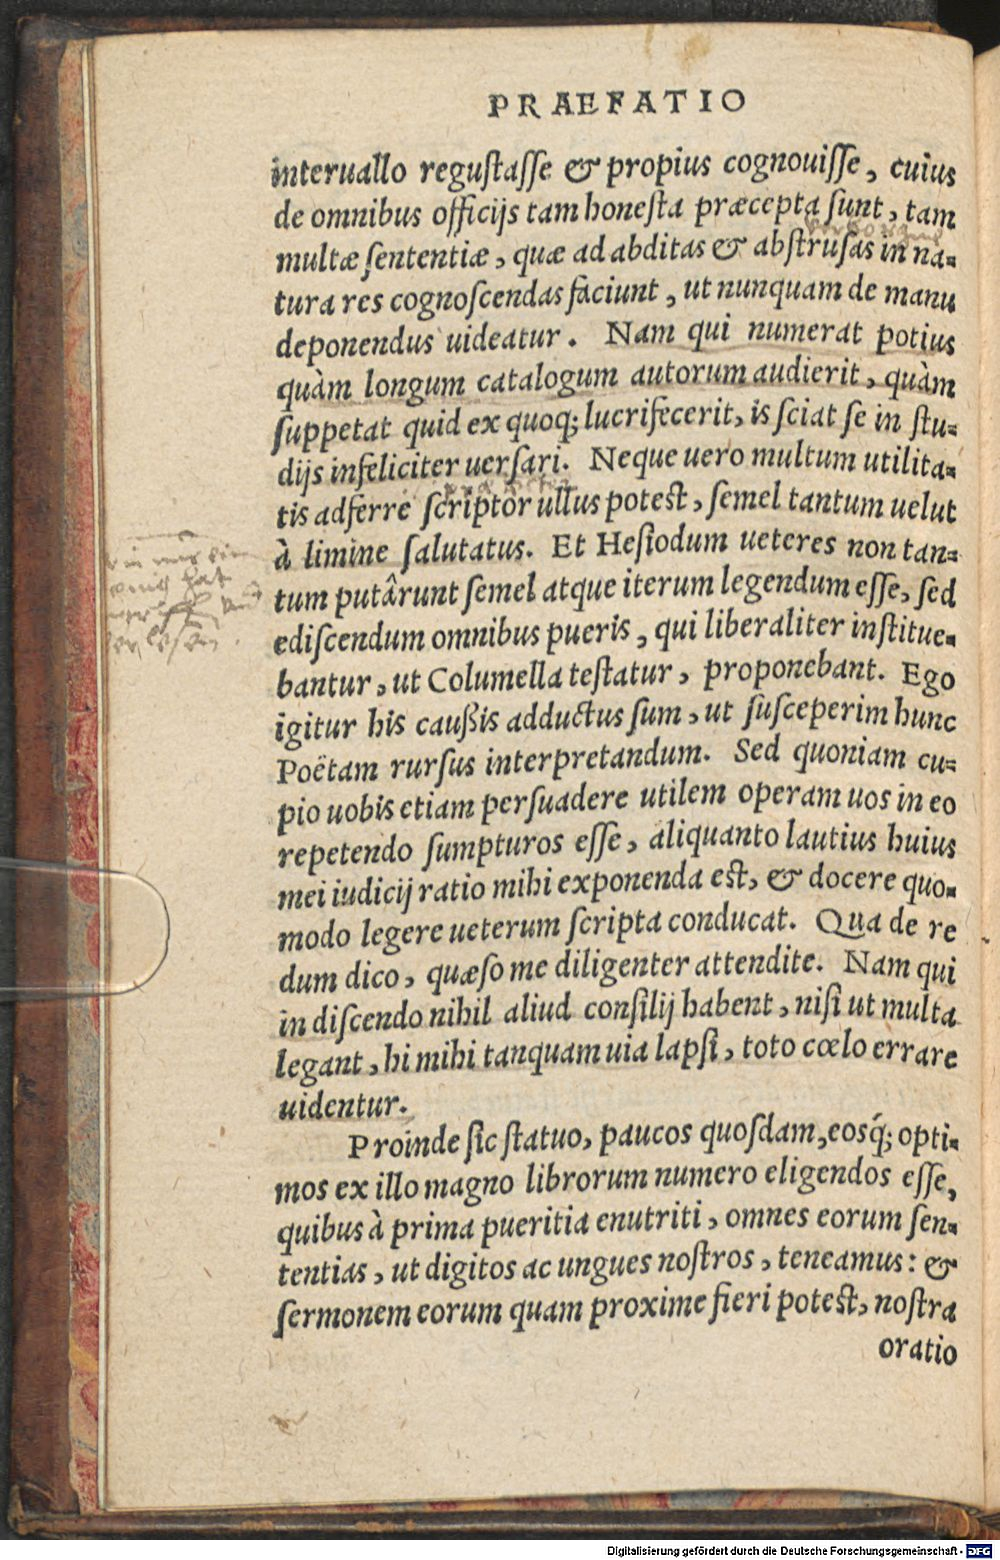 PRAEFATIO
interuallo regustasse & propius cognouisse, cuius
de omnibus officijs tam honesta præcepta sunt, tam
multæ sententiæ, quæ ad abditas & abstrusas in na-
tura res cognoscendas faciunt, ut nunquam de manu
deponendus uideatur. Nam qui numerat potius
quàm longum catalogum autorum audierit, quàm
suppetat quid ex quoq; lucrifecerit, is sciat se in stu-
dijs infeliciter uersari. Neque uero multum utilita-
tis adferre scriptor ullus potest, semel tantum uelut
à limine salutatus. Et Hesiodum ueteres non tan-
tum putârunt semel atque iterum legendum esse, sed
ediscendum omnibus pueris, qui liberaliter institue-
bantur, ut Columella testatur, proponebant. Ego
igitur his caußis adductus sum, ut susceperim hunc
Poëtam rursus interpretandum. Sed quoniam cu-
pio uobis etiam persuadere utilem operam uos in eo
repetendo sumpturos esse, aliquanto lautius huius
mei iudicij ratio mihi exponenda est, & docere quo-
modo legere ueterum scripta conducat. Qua de re
dum dico, quæso me diligenter attendite. Nam qui
in discendo nihil aliud consilij habent, nisi ut multa
legant, hi mihi tanquam uia lapsi, toto cœlo errare
uidentur.
Proinde sic statuo, paucos quosdam, eosq́; opti-
mos ex illo magno librorum numero eligendos esse,
quibus à prima pueritia enutriti, omnes eorum sen-
tentias, ut digitos ac ungues nostros, teneamus: &
sermonem eorum quam proxime fieri potest, nostra
oratio
Digitalisierung gefördert durch die Deutsche Forschungsgemeinschaft - DFG